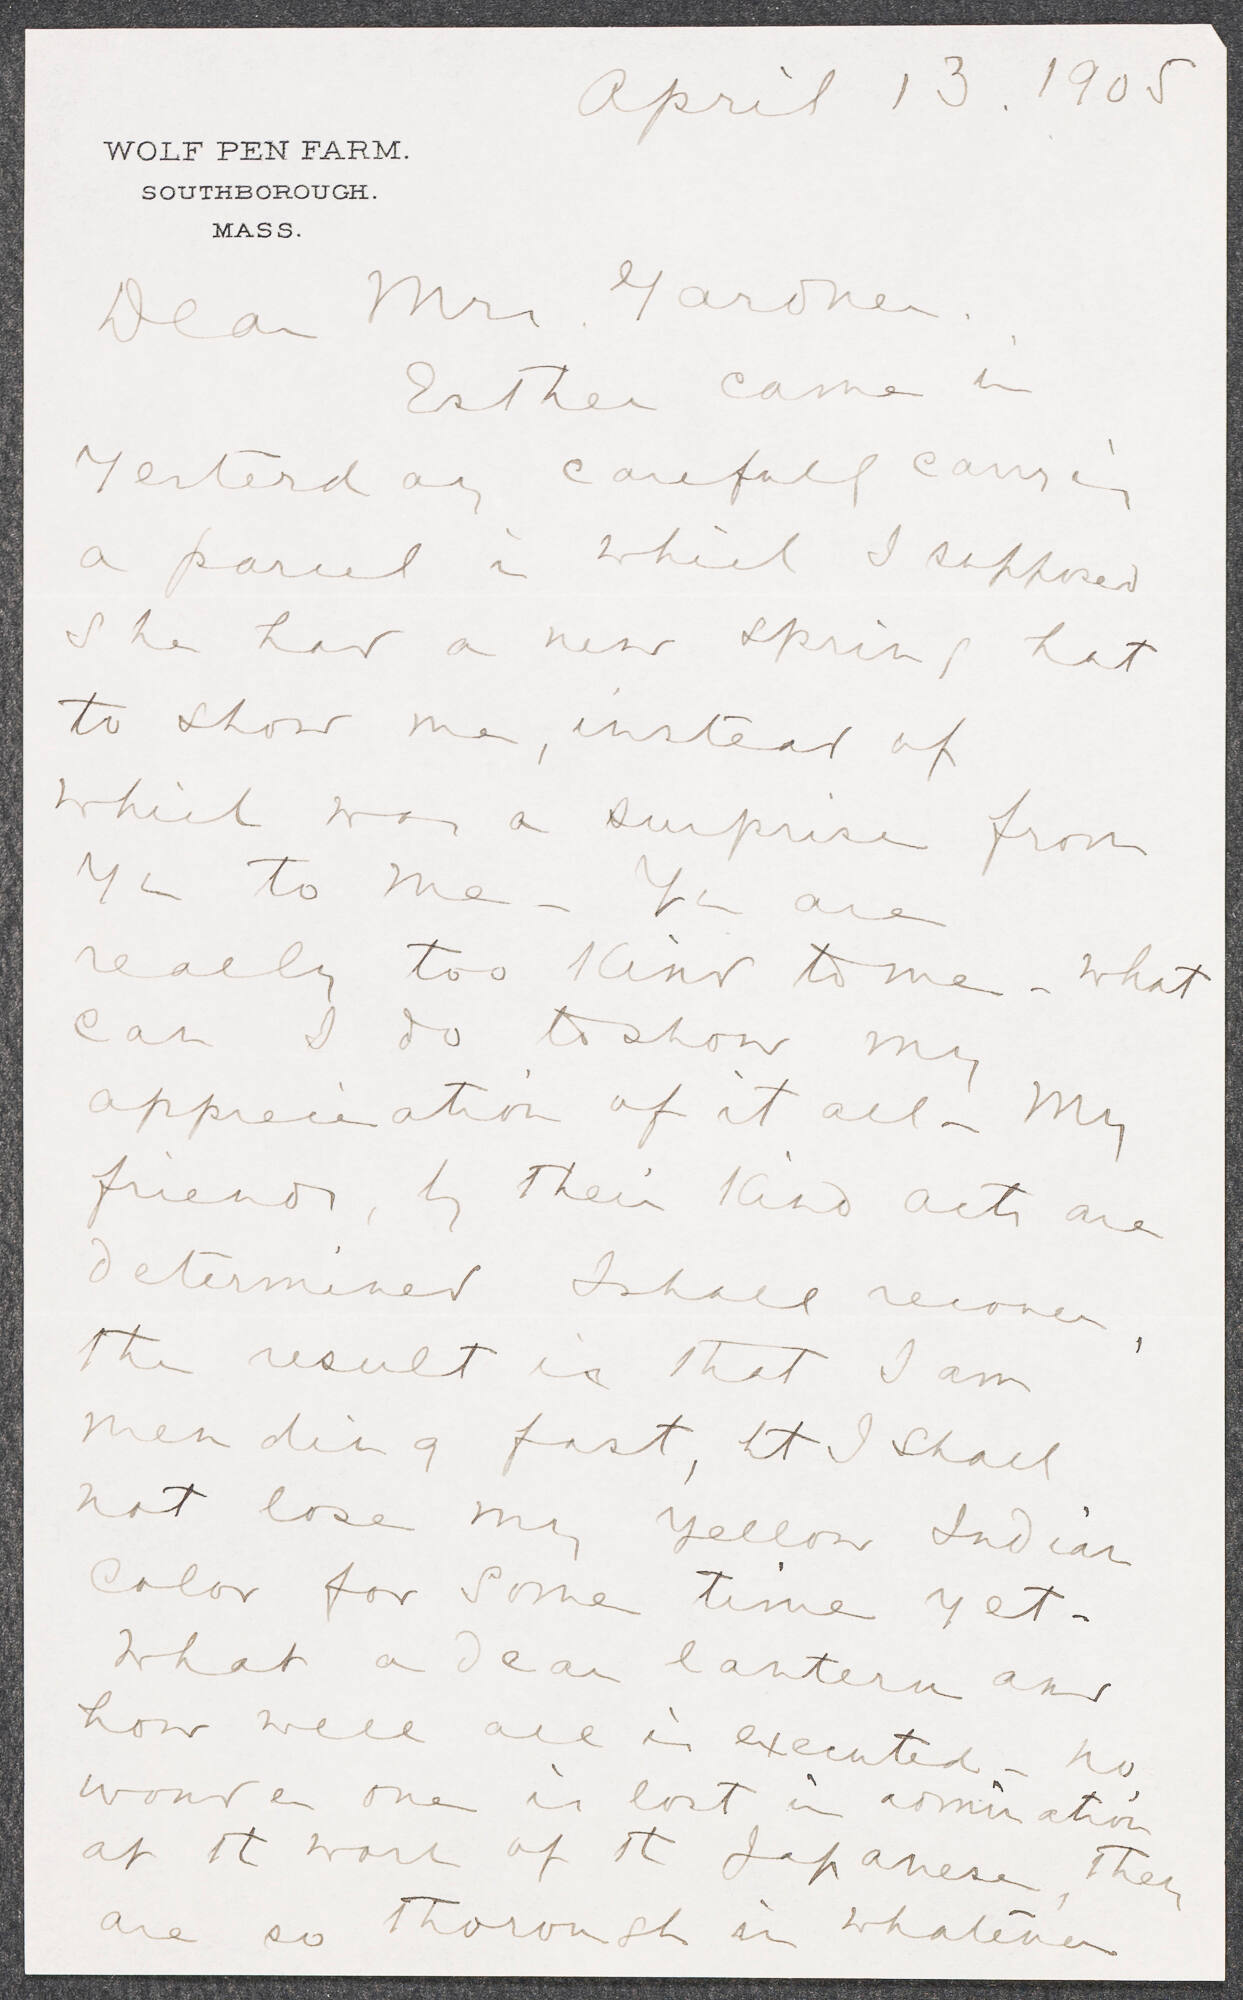 April 13. 1905
WOLF PEN FARM.
SOUTHBOROUGH.
MASS.
Dear Mrs. Gardner.
Esther came in
yesterday carefully carrying
a parcel in which I supposed
she had a new spring hat
to show me, instead of
which was a surprise from
you to me - You are
really too kind to me - what
can I do to show my
appreciation of it all - My
friends, by their kind acts are
determined I shall recover,
the result is that I am
mending fast, but I shall
not lose my yellow Indian
color for some time yet -
What a dear lantern and
how well all is executed - no
wonder one is lost in admiration
at the work of the Japanese, they
are so thorough in whatever